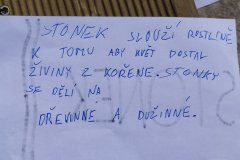 STONEK SLOUŽÍ ROSTLINĚ
K TOMU ABY KVĚT DOSTAL
ŽIVINY Z KOŘENE. STONKY
SE DĚLÍ NA
DŘEVINNÉ A DUŽINNÉ.